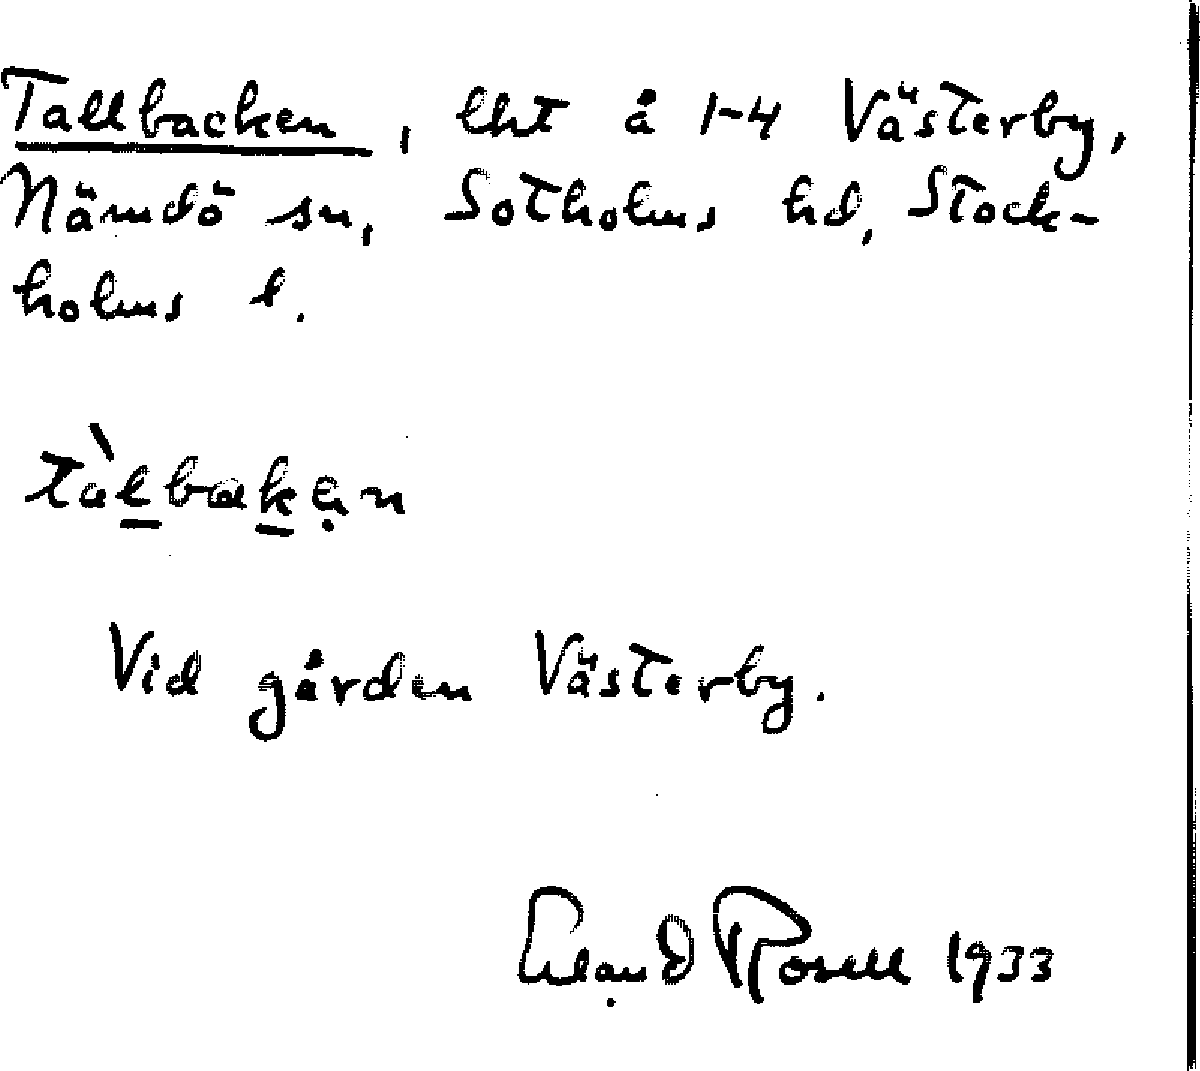 Tallbacken, lht å 1-4 Västerby,
Nämdö sn, Sotholms hd, Stock-
holms l.
tàl̲bak̲ẹn
Vid gården Västerby.
Erland Rosell 1933